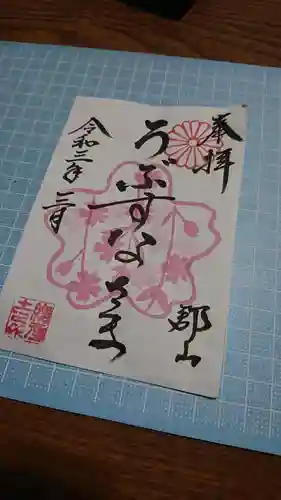 奉拝
うぶすなさま
郡山
令和三年
三月